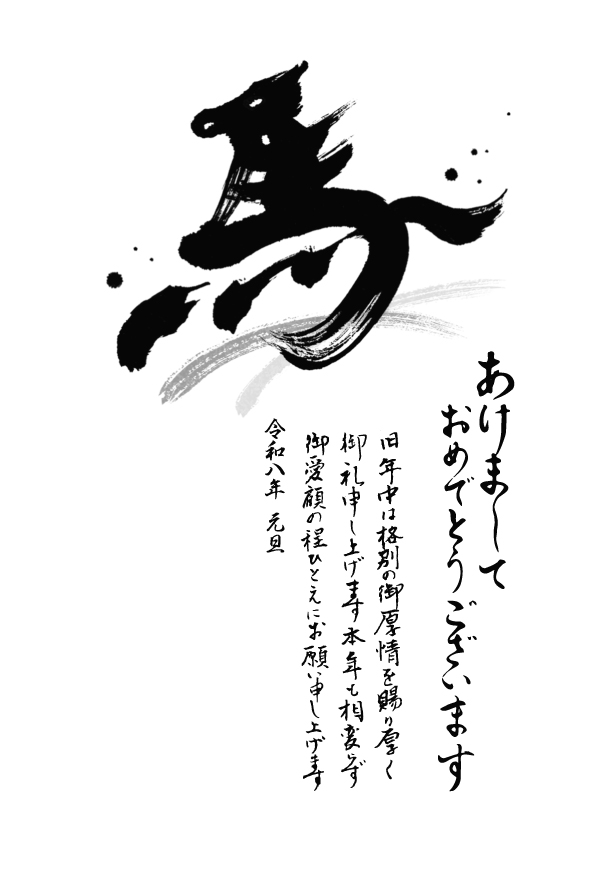 馬
あけまして
おめでとうございます
旧年中は格別の御厚情を賜り厚く
御礼申し上げます本年も相変らず
御愛顧の程ひとえにお願い申し上げます
令和八年 元旦